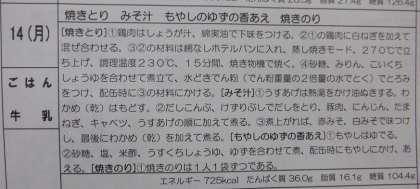 焼きとり みそ汁 もやしのゆずの香あえ 焼きのり
14(月)
ごはん
牛乳
[焼きとり]①鶏肉はしょうが汁、綿実油で下味をつける。②①の鶏肉に白ねぎを加えて
混ぜ合わせる。③②の材料は綿なしホテルパンに入れ、蒸し焼きモード、270℃で立
ち上げ、調理温度230℃、15分間、焼き物機で焼く。④砂糖、みりん、こいくち
しょうゆを合わせて煮立て、水どきでん粉(でん粉重量の2倍量の水でとく)でとろみ
をつけ、配缶時に③の材料にかける。[みそ汁]①うすあげは熱湯をかけ油ぬきする。わ
かめ(乾)はもどす。②だしこんぶ、けずりぶしでだしをとり、豚肉、にんじん、たま
ねぎ、キャベツ、うすあげの順に加えて煮る。③煮上がれば、赤みそ、白みそで味つけ
し、最後にわかめ(乾)を加えて煮る。[もやしのゆずの香あえ]①もやしはゆでる。
②砂糖、塩、米酢、うすくちしょうゆ、ゆずを合わせて煮、配缶時にもやしにかけ、あ
える。[焼きのり]①焼きのりは1人1袋ずつである。
エネルギー 725kcal たんぱく質 36.0g 脂質 16.1g 糖質 104.4g